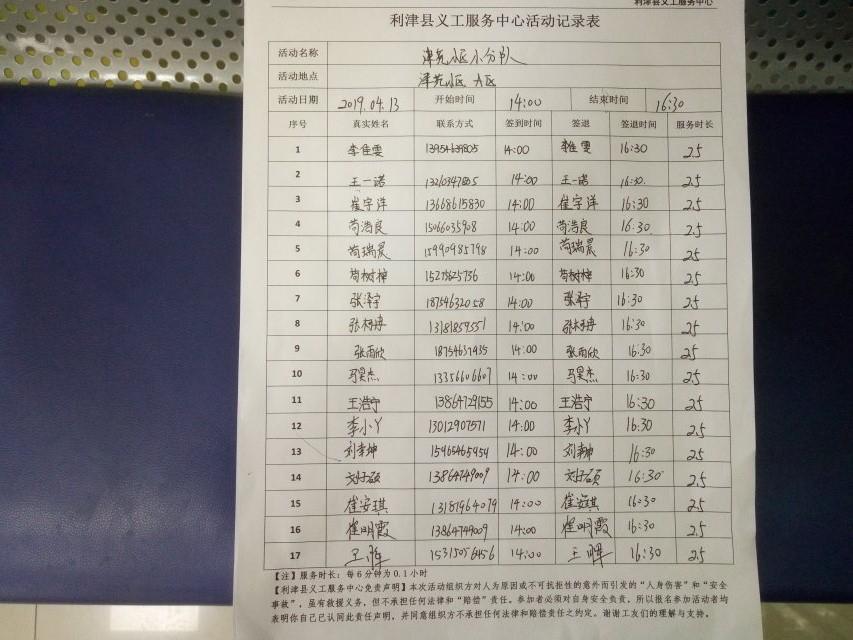 利津县义工服务中心
利津县义工服务中心活动记录表
活动名称 津苑小区小分队
活动地点 津苑小区 A区
活动日期 2019.04.13 开始时间 14:00 结束时间 16:30
序号 真实姓名 联系方式 签到时间 签退 签退时间 服务时长
1 李佳雯 13954639805 14:00 李佳雯 16:30 2.5
2 王一诺 14:00 王一诺 16:30 2.5
3 崔宇洋 13668615830 14:00 崔宇洋 16:30 2.5
4 苟浩良 15066035908 14:00 苟浩良 16:30 2.5
5 苟瑞晨 15990985798 14:00 苟瑞晨 16:30 2.5
6 苟树梓 15273625736 14:00 苟树梓 16:30 2.5
7 张泽宁 18754632058 14:00 张泽宁 16:30 2.5
8 13181859551 14:00 16:30 2.5
9 张雨欣 18754637435 14:00 张雨欣 16:30 2.5
10 马昊杰 13356606607 14:00 马昊杰 16:30 2.5
11 王浩宁 13864729155 14:00 王浩宁 16:30 2.5
12 李小丫 13012907571 14:00 李小丫 16:30 2.5
13 15965465954 14:00 16:30 2.5
14 刘子硕 13864749009 14:00 刘子硕 16:30 2.5
15 崔安琪 13181964079 14:00 崔安琪 16:30 2.5
16 崔明霞 13864749009 14:00 崔明霞 16:30 2.5
17 王晖 15315056456 14:00 王晖 16:30 2.5
【注】服务时长：每6分钟为0.1小时
【利津县义工服务中心免责声明】本次活动组织方对人为原因或不可抗拒性的意外而引发的“人身伤害”和“安全
事故”，虽有救援义务，但不承担任何法律和“赔偿”责任。参加者必须对自身安全负责。所以报名参加活动者均
表明你自己已认同此责任声明，并同意组织方不承担任何法律和赔偿责任之约定。谢谢工友们的理解与支持。